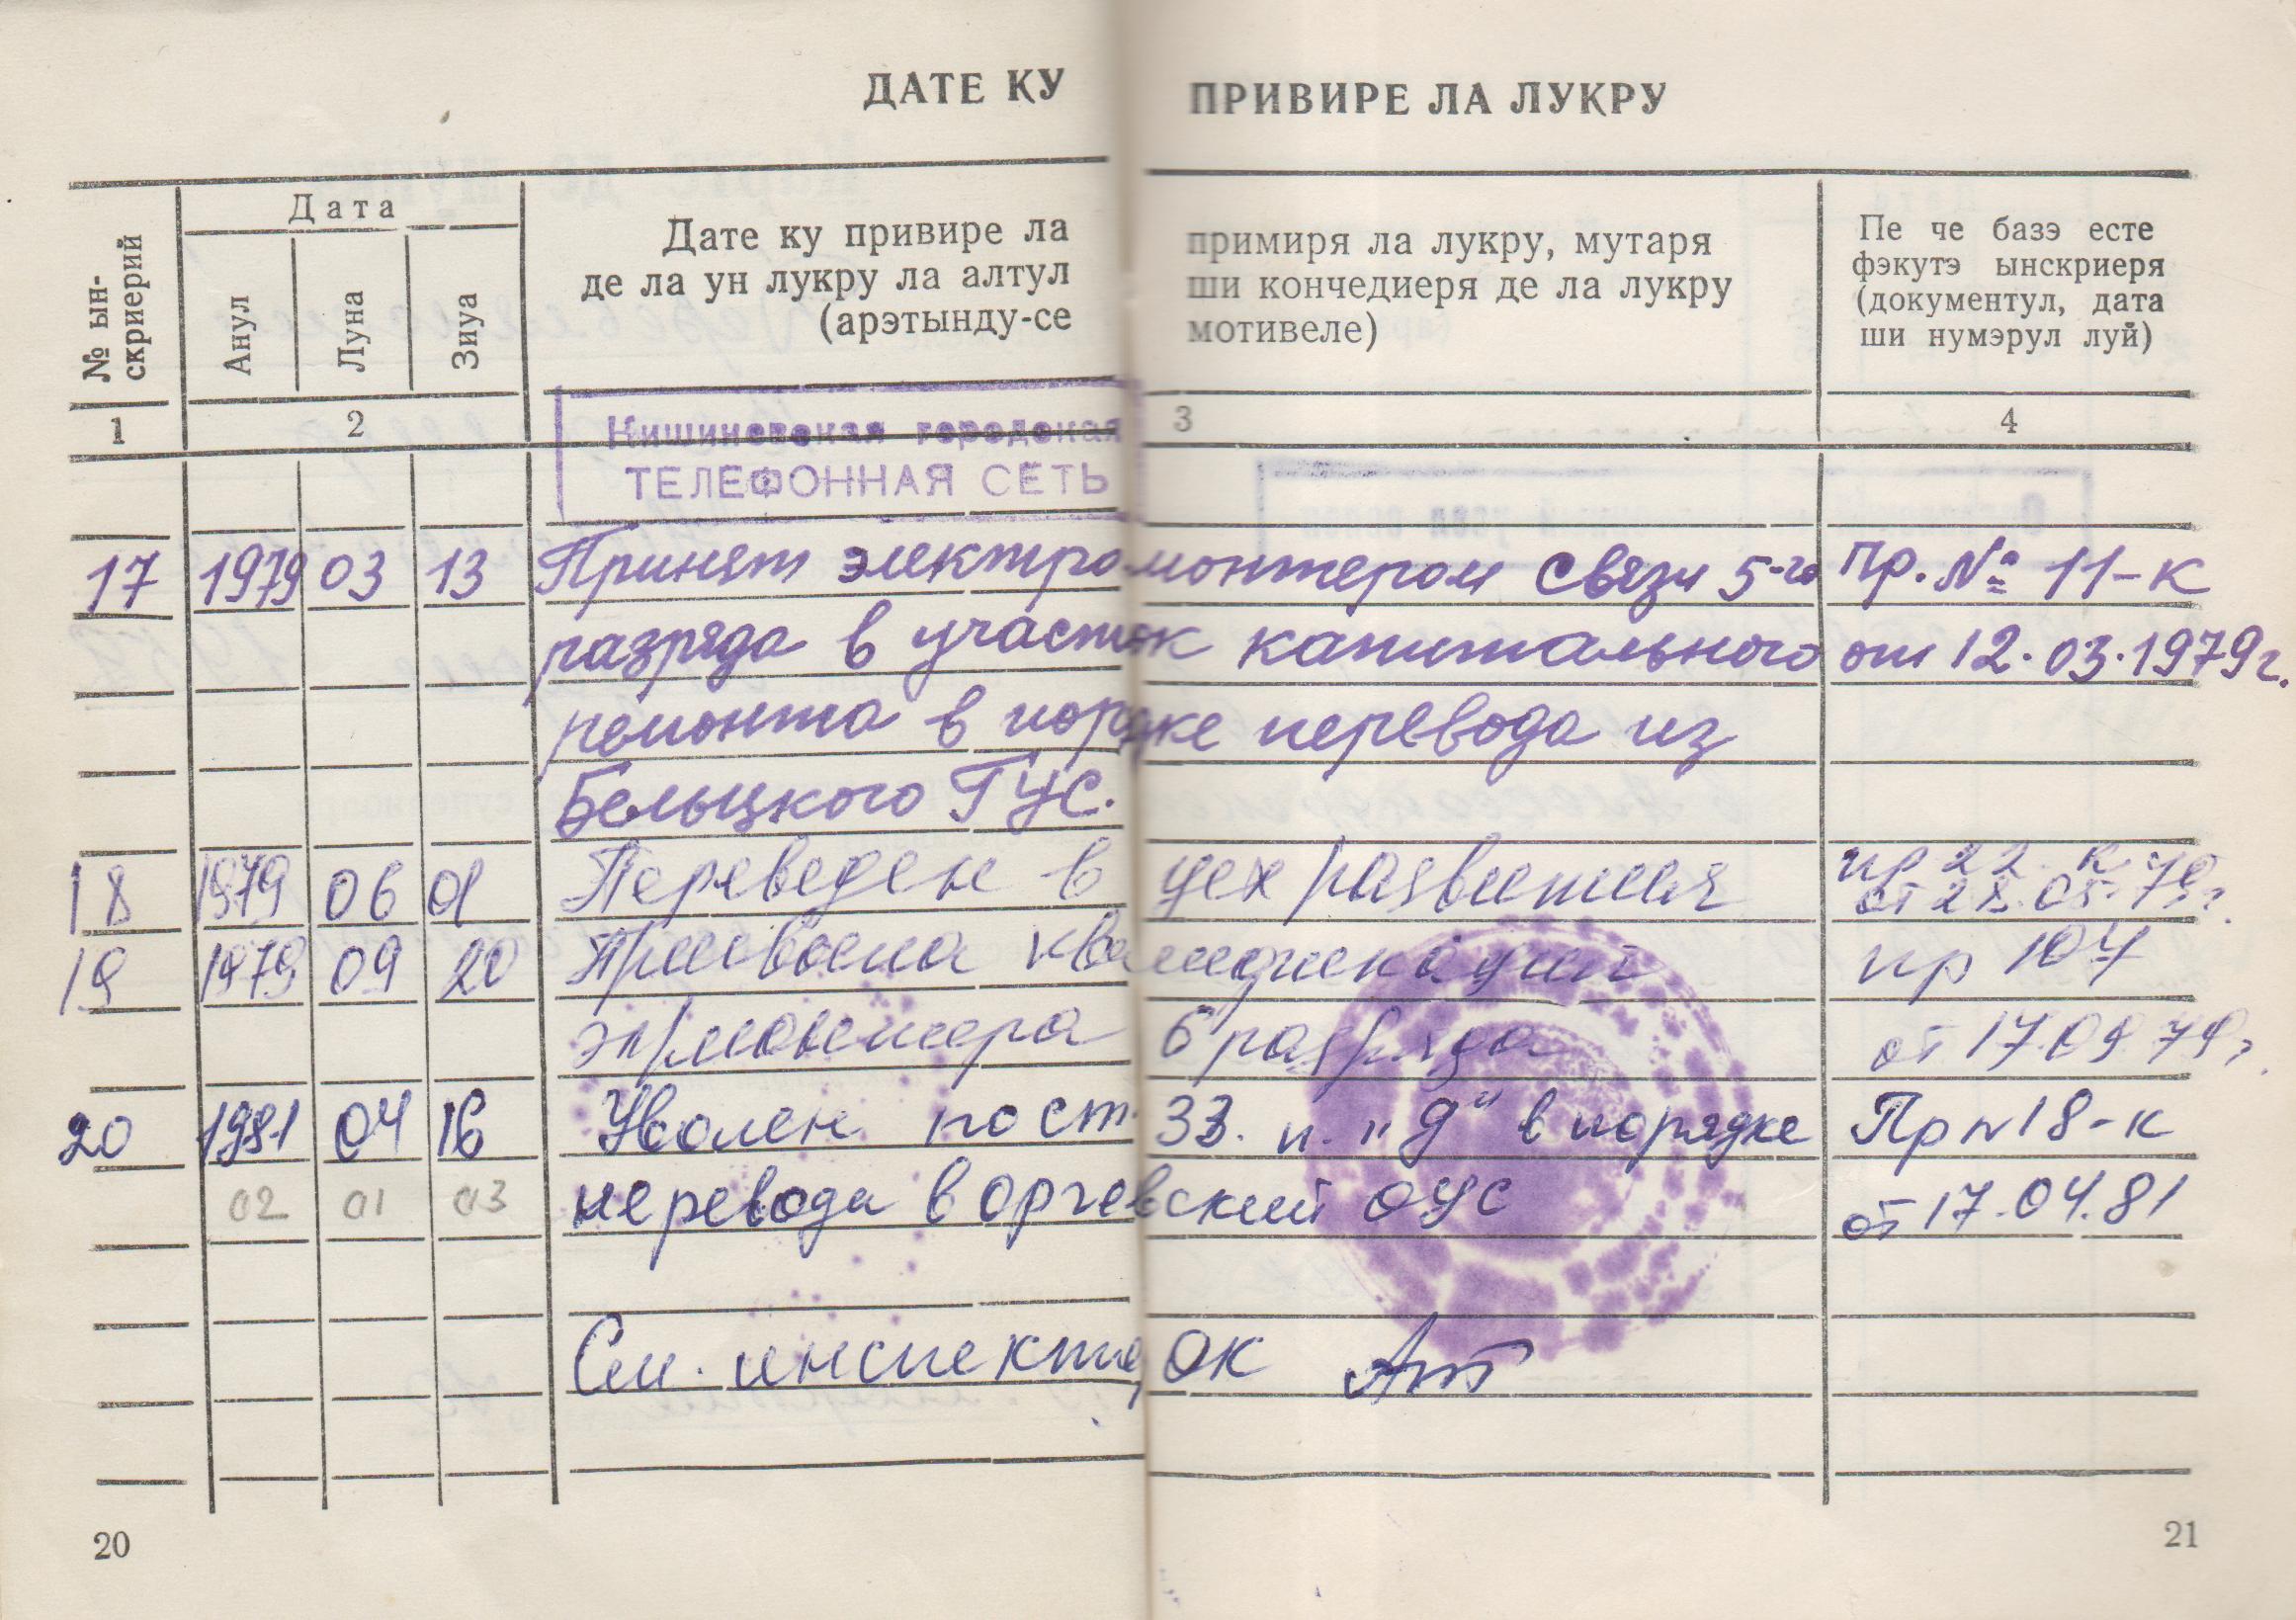 ДАТЕ КУ ПРИВИРЕ ЛА ЛУКРУ
№ ын-
скриерий
Дата
Анул
Луна
Зиуа
Дате ку привире ла примиря ла лукру, мутаря
де ла ун лукру ла алтул ши кончедиеря де ла лукру
(арэтынду-се мотивеле)
Пе че базэ есте
фэкутэ ынскриеря
(документул, дата
ши нумэрул луй)
1 2 3 4
Кишиневская городская
ТЕЛЕФОННАЯ СЕТЬ
17 1979 03 13 Принят электромонтером связи 5-го Пр. № 11-к
разряда в участок капитального от 12.03.1979г.
ремонта в порядке перевода из
Бельцкого ГУС.
18 1979 06 01 Переведен в цех развития пр 22 к
от 28.05.79г.
19 1979 09 20 Присвоена квалификации пр 104
эл/монтера 6 разряда от 17.09.79г.
20 1981 04 16 Уволен по ст. 33. п. "д" в порядке Пр N 18-к
02 01 03 перевода в оргевский ОУС от 17.04.81
инспектор ОК
20
21